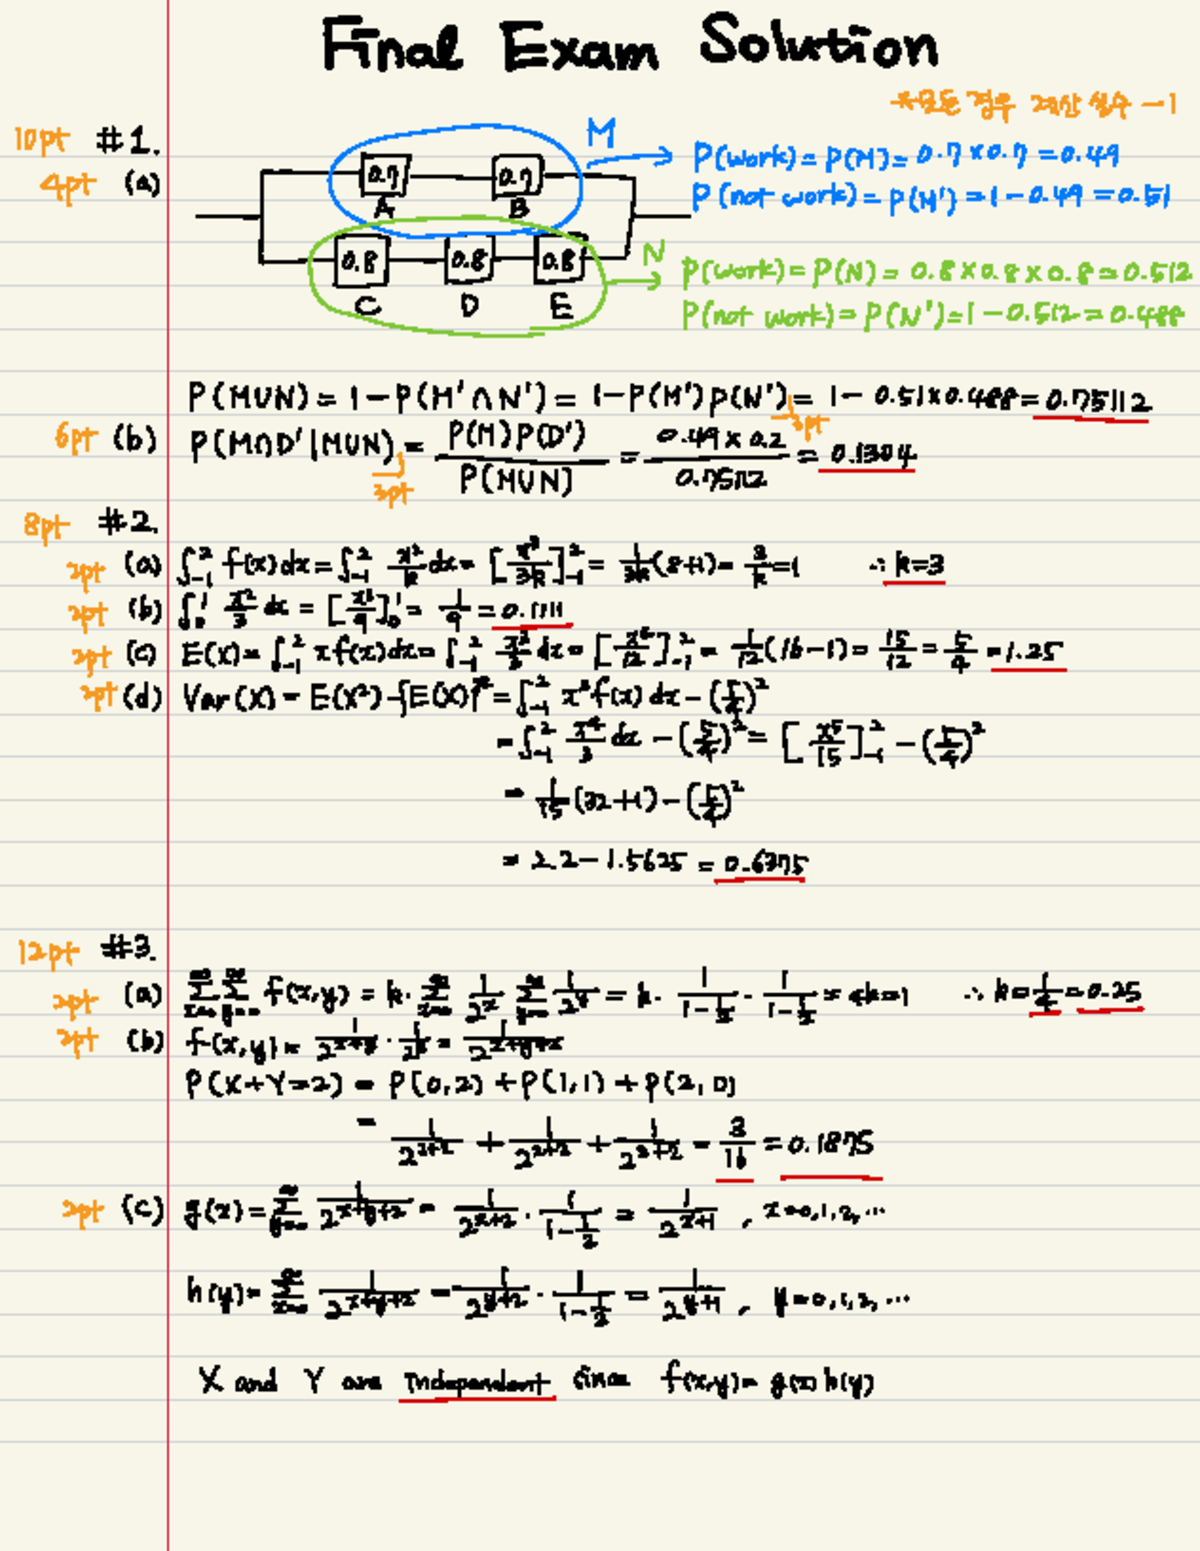 Final Exam Solution
*모든 경우 계산 실수 -1
10pt #1.
4pt (a)
0.7 0.7 M
A B
0.8 0.8 0.8 N
C D E
P(work) = P(M) = 0.7 × 0.7 = 0.49
P(not work) = P(M') = 1 - 0.49 = 0.51
P(work) = P(N) = 0.8 × 0.8 × 0.8 = 0.512
P(not work) = P(N') = 1 - 0.512 = 0.488
P(M∪N) = 1 - P(M'∩N') = 1 - P(M')P(N') = 1 - 0.51×0.488 = 0.75112
6pt (b) P(M∩D'|M∪N) = P(M)P(D')/P(M∪N) = 0.49 × 0.2/0.75112 = 0.1304
3pt
8pt #2.
2pt (a) ∫_{-1}^{2} f(x)dx = ∫_{-1}^{2} x²/k dx = [x³/3k]_{-1}^{2} = 1/3k (8+1) = 3/k = 1 ∴ k=3
2pt (b) ∫_0^1 x²/3 dx = [x³/9]_0^1 = 1/9 = 0.1111
2pt (c) E(X) = ∫_{-1}^{2} x f(x)dx = ∫_{-1}^{2} x³/3 dx = [x⁴/12]_{-1}^{2} = 1/12 (16-1) = 15/12 = 5/4 = 1.25
2pt (d) Var(X) = E(X²) - {E(X)}² = ∫_{-1}^{2} x² f(x) dx - (5/4)²
= ∫_{-1}^{2} x⁴/3 dx - (5/4)² = [x⁵/15]_{-1}^{2} - (5/4)²
= 1/15 (32+1) - (5/4)²
= 2.2 - 1.5625 = 0.6375
12pt #3.
2pt (a) ∑_{x=0}^{∞} ∑_{y=0}^{∞} f(x,y) = k · ∑_{x=0}^{∞} 1/2^x ∑_{y=0}^{∞} 1/2^y = k · 1/(1-1/2) · 1/(1-1/2) = 4k = 1 ∴ k = 1/4 = 0.25
2pt (b) f(x,y) = 1/2^{x+y} · 1/2² = 1/2^{x+y+2}
P(X+Y=2) = P(0,2) + P(1,1) + P(2,0)
= 1/2^{2+2} + 1/2^{2+2} + 1/2^{2+2} = 3/16 = 0.1875
2pt (c) g(x) = ∑_{y=0}^{∞} 1/2^{x+y+2} = 1/2^{x+2} · 1/(1-1/2) = 1/2^{x+1} , x=0,1,2,⋯
h(y) = ∑_{x=0}^{∞} 1/2^{x+y+2} = 1/2^{y+2} · 1/(1-1/2) = 1/2^{y+1} , y=0,1,2,⋯
X and Y are independent since f(x,y) = g(x) h(y)